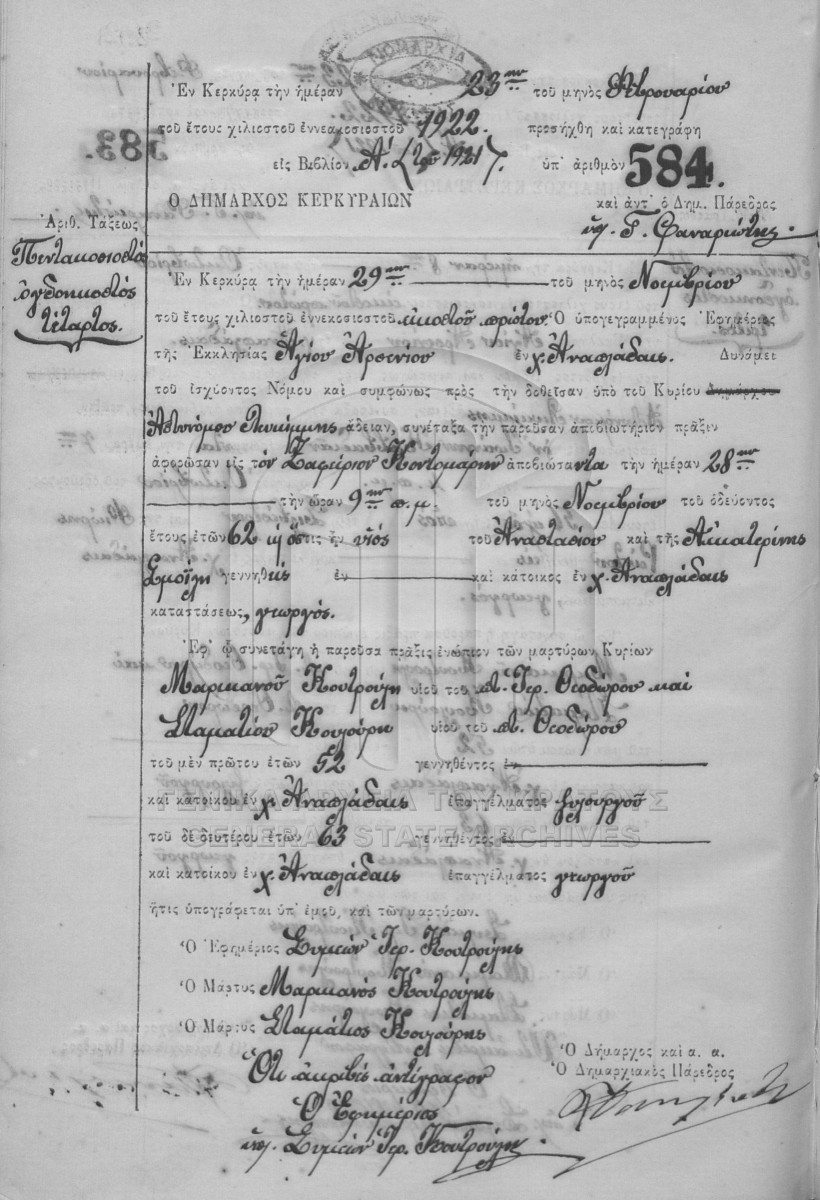 ΝΟΜΑΡΧΙΑ
Ἐν Κερκύρᾳ τὴν ἡμέραν 23ην τοῦ μηνὸς Φεβρουαρίου
τοῦ ἔτους χιλιοστοῦ ἐννεακοσιοστοῦ 1922. προσήχθη καὶ κατεγράφη
εἰς Βιβλίον Α΄. (τοῦ 1921). ὑπ' ἀριθμὸν 584.
Ο ΔΗΜΑΡΧΟΣ ΚΕΡΚΥΡΑΙΩΝ
καὶ ἀντ' ὁ Δημ. Πάρεδρος
ὑπ. Γ. Φαναριώτης.
Ἀριθ. Τάξεως
Πεντακοσιοστὸς
ὀγδοηκοστὸς
τέταρτος.
Ἐν Κερκύρᾳ τὴν ἡμέραν 29ην τοῦ μηνὸς Νοεμβρίου
τοῦ ἔτους χιλιοστοῦ ἐννεκοσιοστοῦ εἰκοστοῦ πρώτου. Ὁ ὑπογεγραμμένος Ἐφημέριος
τῆς Ἐκκλησίας Ἁγίου Ἀρσενίου ἐν χ. Ἀναπλάδαις. Δυνάμει
τοῦ ἰσχύοντος Νόμου καὶ συμφώνως πρὸς τὴν δοθεῖσαν ὑπὸ τοῦ Κυρίου Δημάρχου
Ἀστυνόμου Λευκίμμης ἄδειαν, συνέταξα τὴν παροῦσαν ἀποβιωτήριον πρᾶξιν
ἀφορῶσαν εἰς τὸν Ζαφείριον Κοντομάρην ἀποβιώσαντα τὴν ἡμέραν 28ην
τὴν ὥραν 9ην π.μ. τοῦ μηνὸς Νοεμβρίου τοῦ ὁδεύοντος
ἔτους ἐτῶν 62 ὅστις ἦν υἱὸς τοῦ Ἀναστασίου καὶ τῆς Αἰκατερίνης
Σμοΐλη γεννηθεὶς ἐν καὶ κάτοικος ἐν χ. Ἀναπλάδαις
καταστάσεως, γεωργός.
Ἐφ' ᾧ συνετάγη ἡ παροῦσα πρᾶξις ἐνώπιον τῶν μαρτύρων Κυρίων
Μαρκιανοῦ Κουτρούλη υἱοῦ τοῦ Ἱερ. Θεοδώρου καὶ
Σταματίου Κουλούρη υἱοῦ τοῦ Θεοδώρου
τοῦ μὲν πρώτου ἐτῶν 52 γεννηθέντος ἐν
καὶ κατοίκου ἐν χ. Ἀναπλάδαις ἐπαγγέλματος ξυλουργοῦ
ΓΕΝΙΚΑ ΑΡΧΕΙΑ ΤΟΥ ΚΡΑΤΟΥΣ
GENERAL STATE ARCHIVES
τοῦ δὲ δευτέρου ἐτῶν 63 γεννηθέντος ἐν
καὶ κατοίκου ἐν χ. Ἀναπλάδαις ἐπαγγέλματος γεωργοῦ
ἥτις ὑπογράφεται ὑπ' ἐμοῦ, καὶ τῶν μαρτύρων.
Ὁ Ἐφημέριος Συμεὼν Ἱερ. Κουτρούλης
Ὁ Μάρτυς Μαρκιανὸς Κουτρούλης
Ὁ Μάρτυς Σταμάτιος Κουλούρης
Ὅτι ἀκριβὲς ἀντίγραφον
Ὁ Ἐφημέριος
ὑπ. Συμεὼν Ἱερ. Κουτρούλης.
Ὁ Δήμαρχος καὶ α. α.
Ὁ Δημαρχιακὸς Πάρεδρος